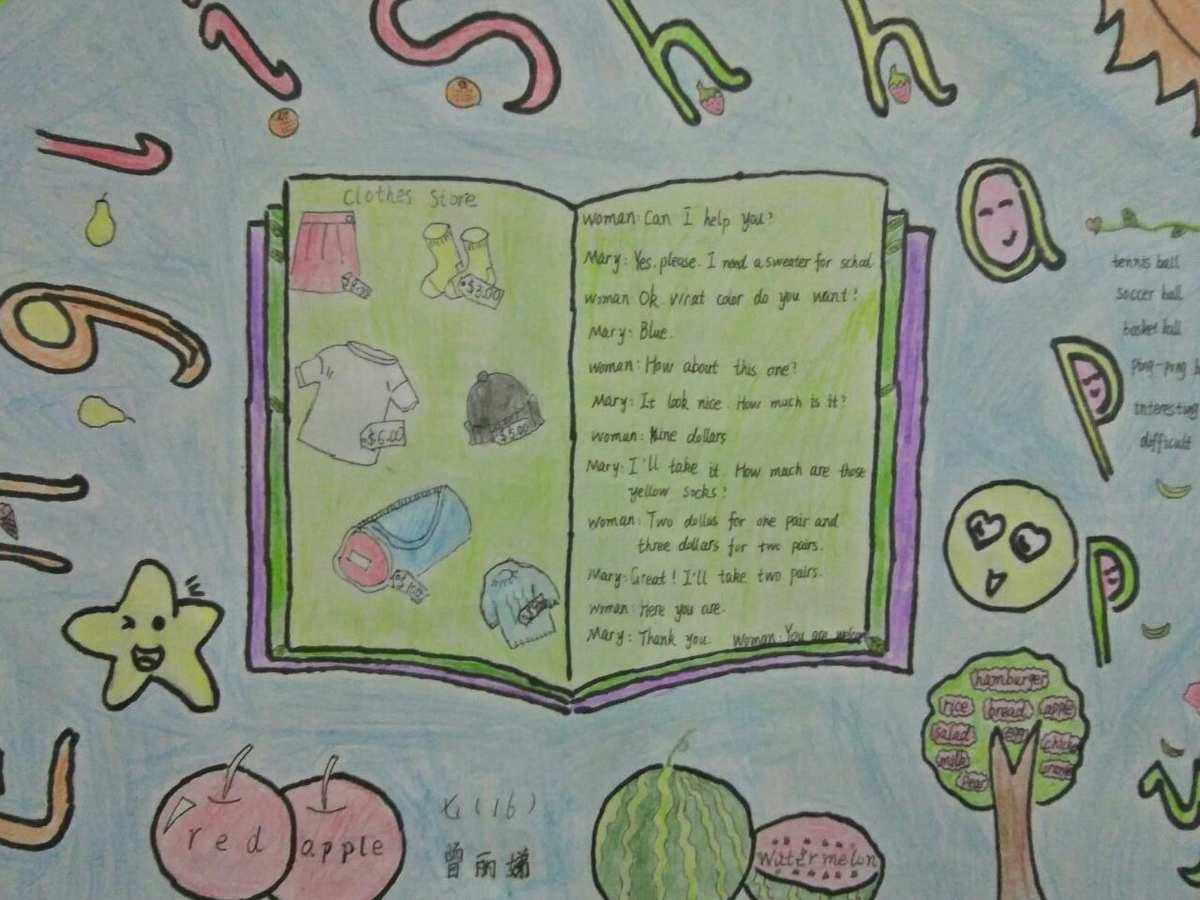 Clothes Store
$3.00
$6.00
$5.00
woman: Can I help you?
Mary: Yes, please. I need a sweater for school.
woman: Ok. What color do you want?
Mary: Blue.
woman: How about this one?
Mary: It look nice. How much is it?
woman: Nine dollars
Mary: I'll take it. How mach are those
yellow socks?
woman: Two dollas for one pair and
three dollars for two pairs.
Mary: Great! I'll take two pairs.
woman: Here you are.
Mary: Thank you. Woman: You are
tennis ball
soccer ball
basket ball
ping-pong
interesting
difficult
hamburger
rice bread apple
salad egg
milk
pear
red apple
七(16)
曾丽娣
Watermelon